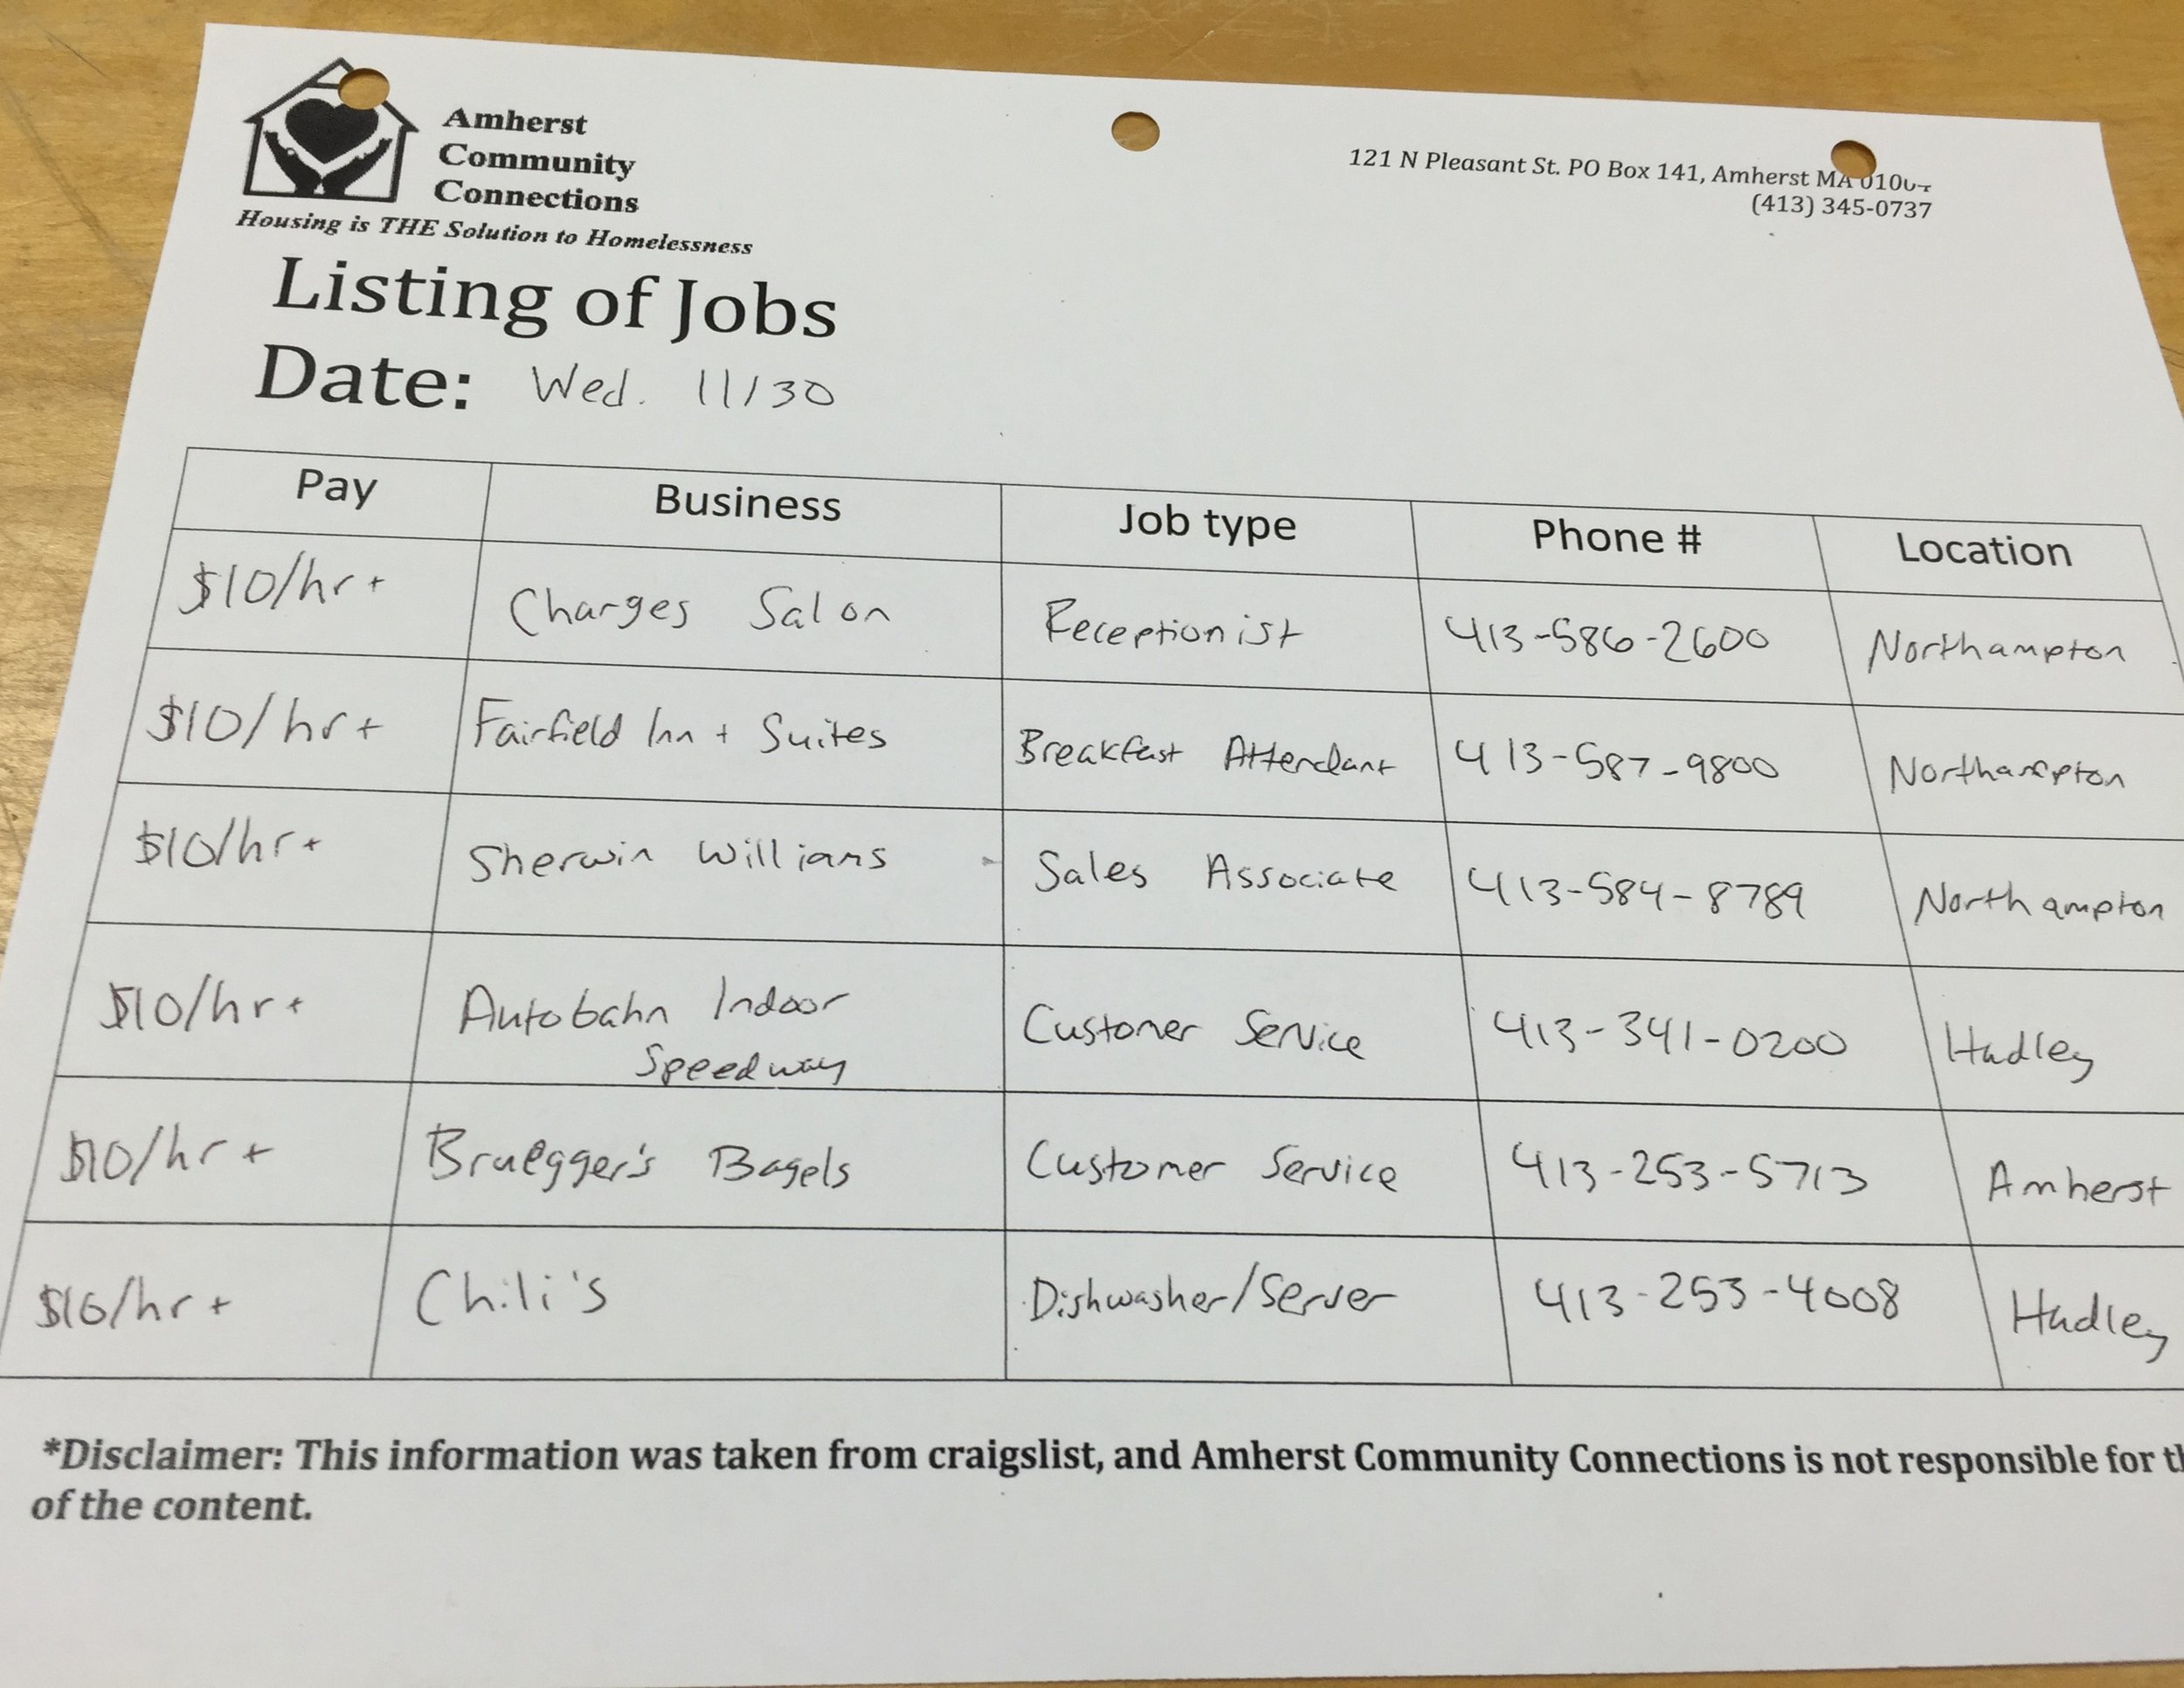 Amherst
Community
Connections
Housing is THE Solution to Homelessness
121 N Pleasant St. PO Box 141, Amherst MA
(413) 345-0737
Listing of Jobs
Date: Wed. 11/30
Pay Business Job type Phone # Location
$10/hr+ Charges Salon Receptionist 413-586-2600 Northampton
$10/hr+ Fairfield Inn + Suites Breakfast Attendant 413-587-9800 Northampton
$10/hr+ Sherwin Williams Sales Associate 413-584-8789 Northampton
$10/hr+ Autobahn Indoor Customer Service 413-341-0200 Hadley
Speedway
$10/hr+ Bruegger's Bagels Customer Service 413-253-5713 Amherst
$10/hr+ Chili's Dishwasher/Server 413-253-4008 Hadley
*Disclaimer: This information was taken from craigslist, and Amherst Community Connections is not responsible for
of the content.